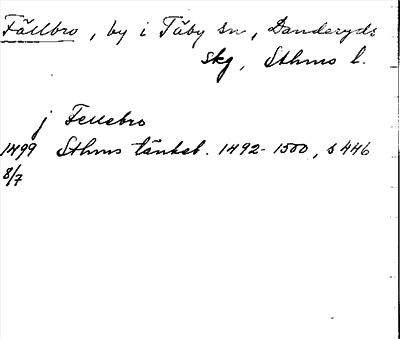 Fällbro, by i Täby sn, Danderyds
skg, Sthms l.
j Fellebro
1499 Sthms tänkeb. 1492-1500, s 446
8/7